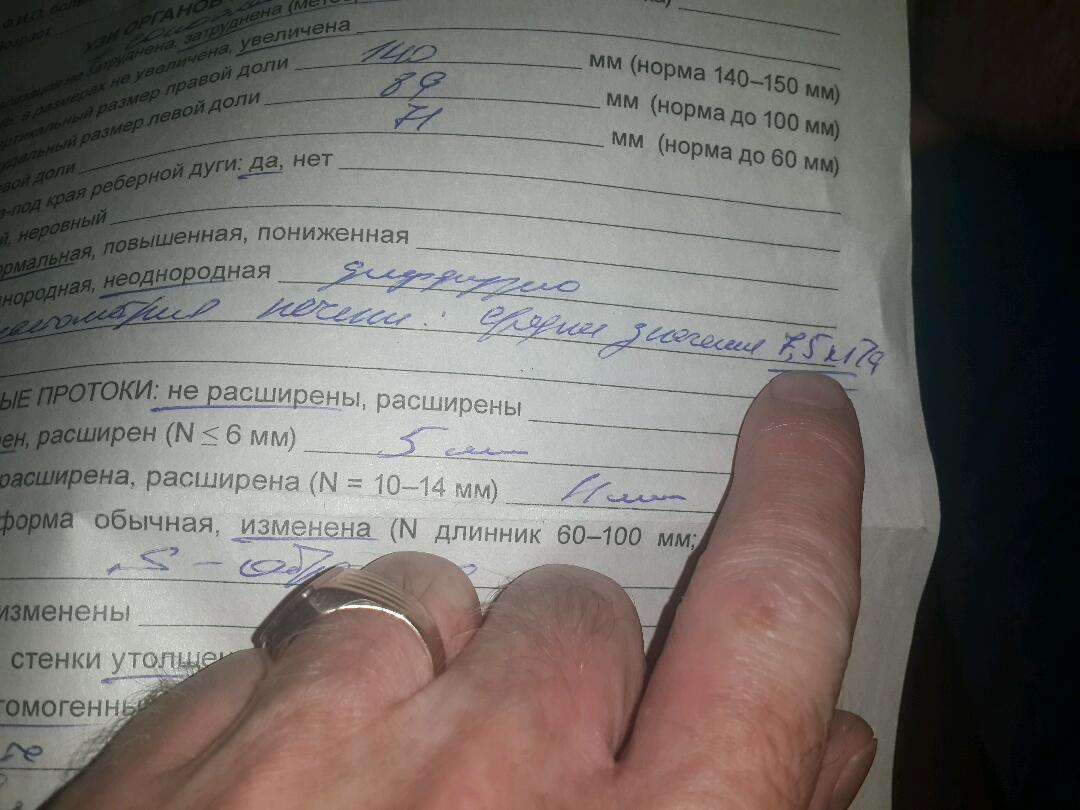 Ф.И.О. боль
возраст
УЗИ ОРГАНОВ
не затруднена, затруднена (метеор
в размерах не увеличена, увеличена
размер правой доли 140 мм (норма 140–150 мм)
размер левой доли 89 мм (норма до 100 мм)
доли 71 мм (норма до 60 мм)
з-под края реберной дуги: да, нет
й, неровный
ормальная, повышенная, пониженная
нородная, неоднородная диффузно
печени: средне значение 7,5 кПа
ЫЕ ПРОТОКИ: не расширены, расширены
ен, расширен (N ≤ 6 мм) 5 мм
расширена, расширена (N = 10–14 мм) 11 мм
форма обычная, изменена (N длинник 60–100 мм;
S – обр
изменены
стенки утолщен
гомогенны